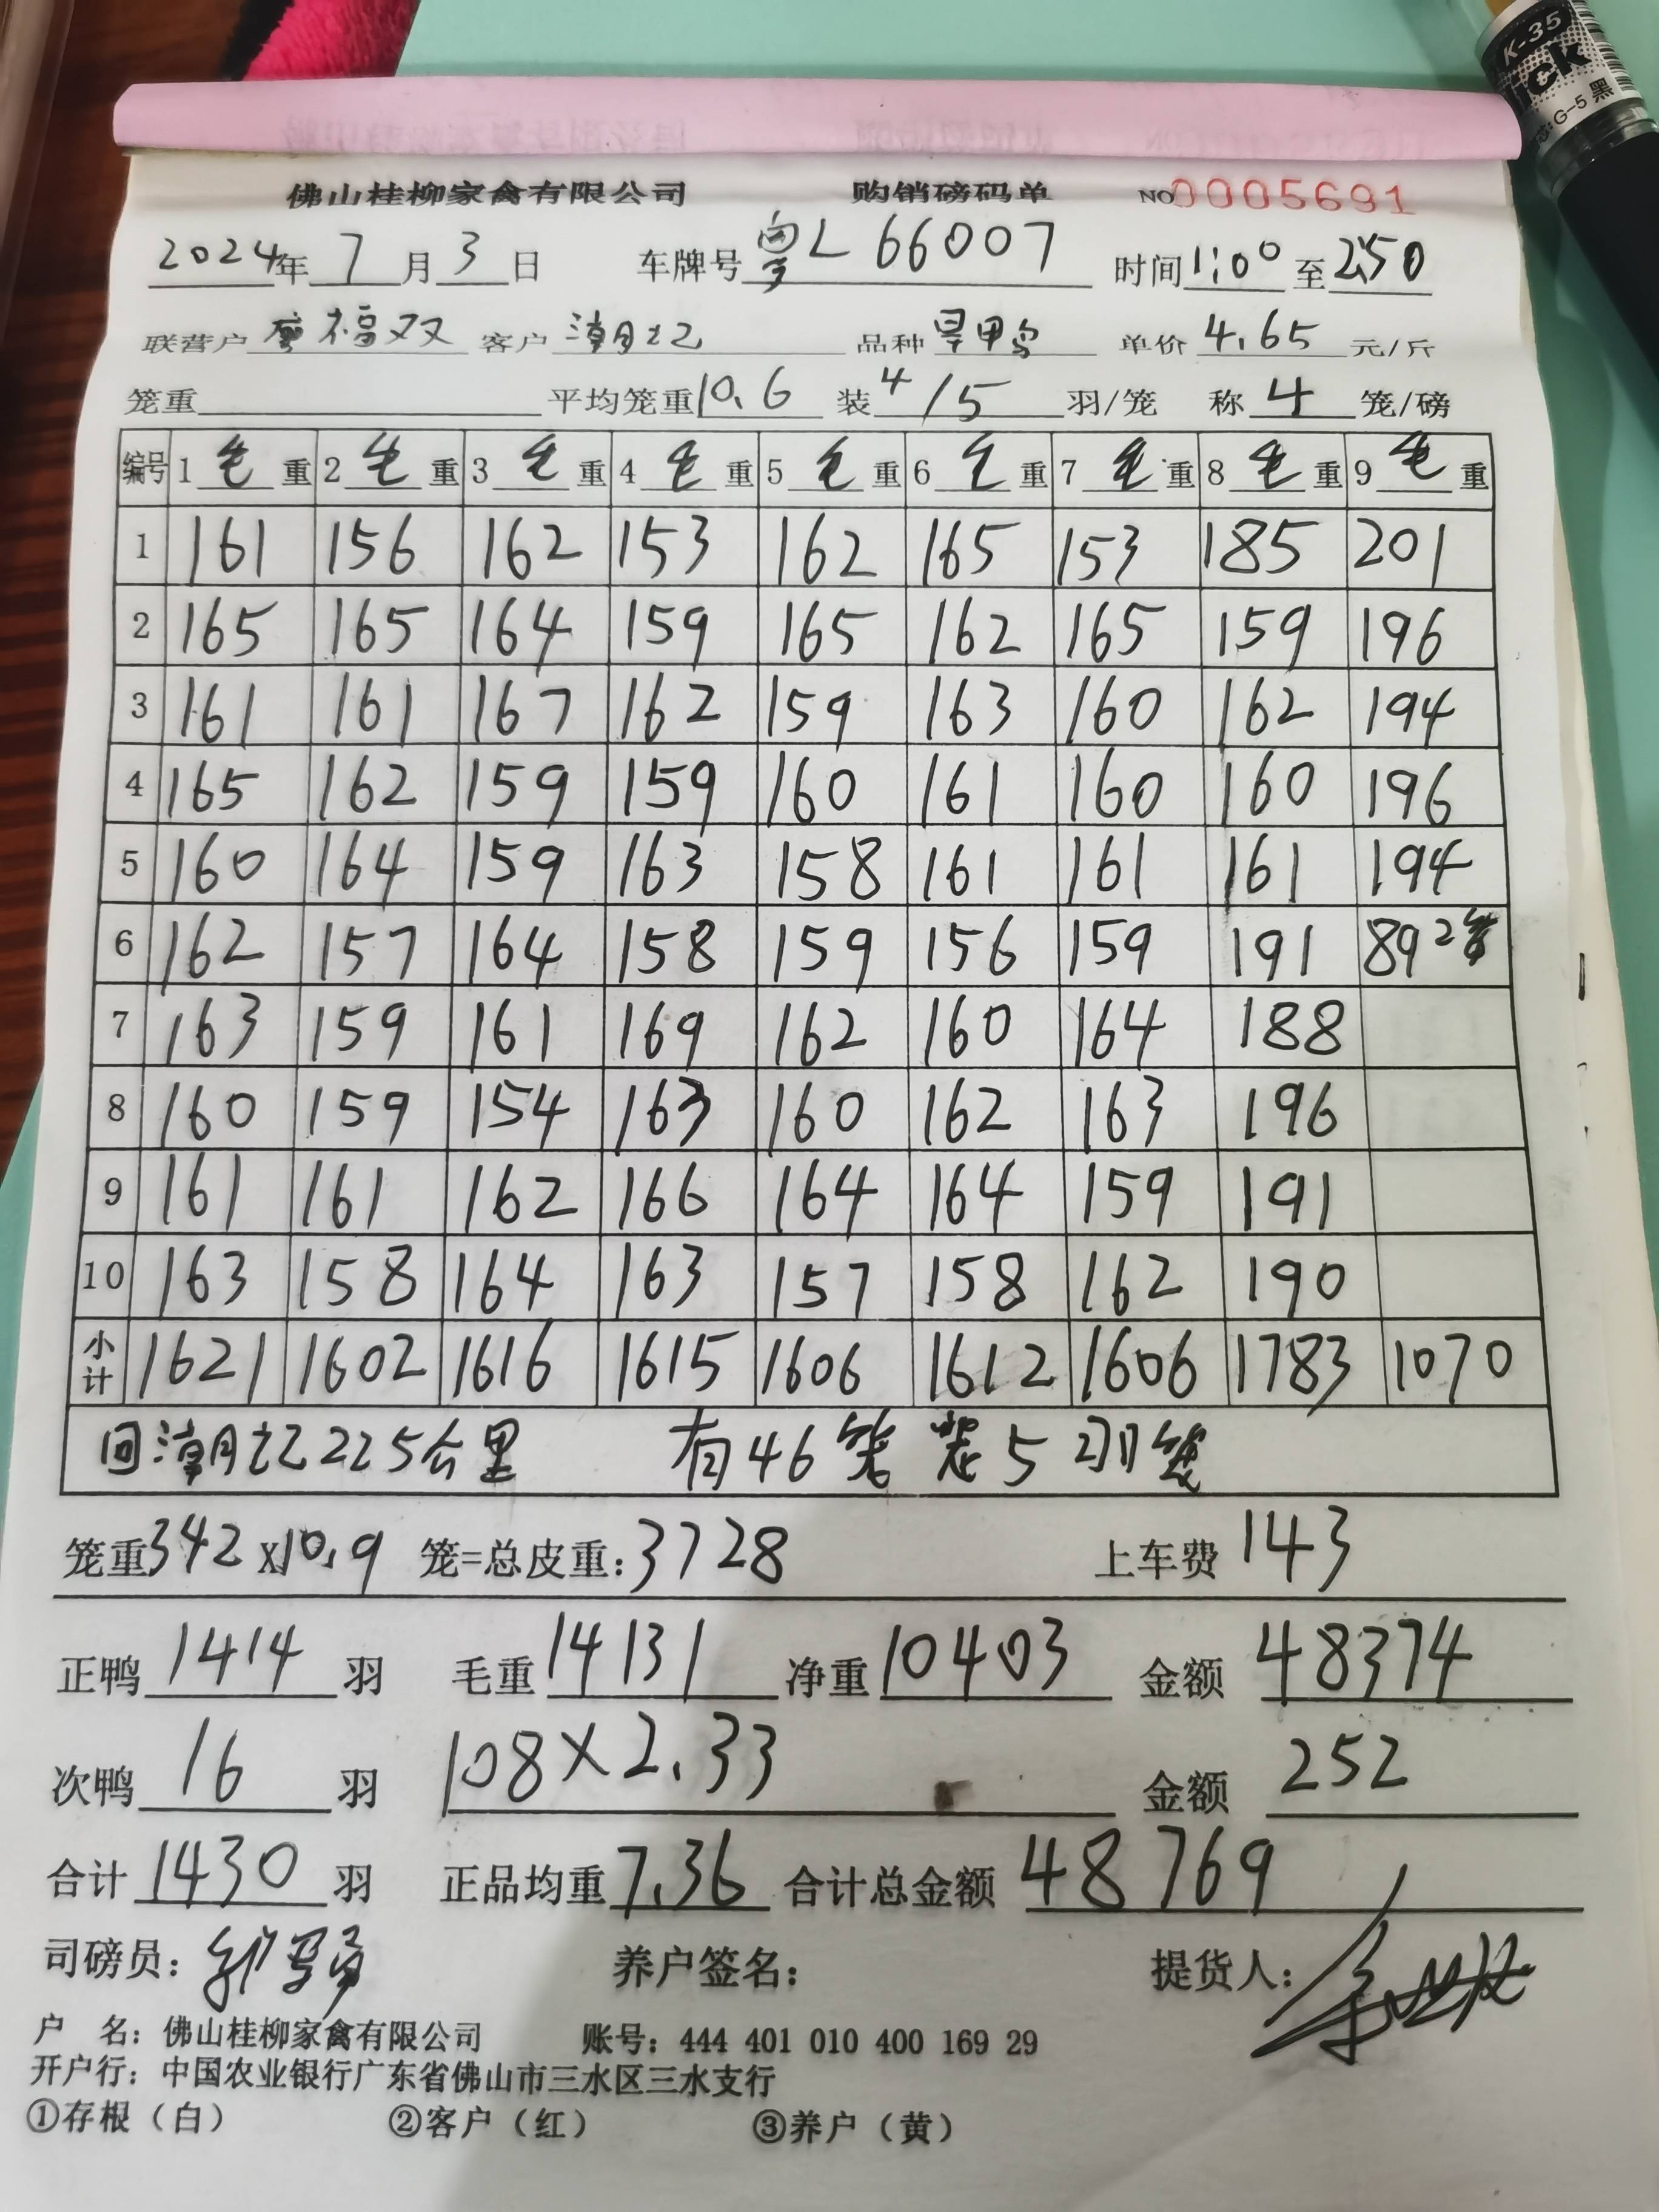 K-35
G-5 黑
佛山桂柳家禽有限公司 购销磅码单 NO 0005691
2024年 7 月 3 日 车牌号 粤L 66007 时间 1:00 至 2:50
联营户 福双 客户 潮 品种 旱甲鸟 单价 4.65 元/斤
笼重 平均笼重 10.6 装 4/5 羽/笼 称 4 笼/磅
编号 1 毛 重 2 毛 重 3 毛 重 4 毛 重 5 毛 重 6 毛 重 7 毛 重 8 毛 重 9 毛 重
1 161 156 162 153 162 165 153 185 201
2 165 165 164 159 165 162 165 159 196
3 161 161 167 162 159 163 160 162 194
4 165 162 159 159 160 161 160 160 196
5 160 164 159 163 158 161 161 161 194
6 162 157 164 158 159 156 159 191 89 2笼
7 163 159 161 169 162 160 164 188
8 160 159 154 163 160 162 163 196
9 161 161 162 166 164 164 159 191
10 163 158 164 163 157 158 162 190
小计 1621 1602 1616 1615 1606 1612 1606 1783 1070
回潮 225公里 有46笼装5羽笼
笼重 342 X 10.9 笼=总皮重: 3728 上车费 143
正鸭 1414 羽 毛重 14131 净重 10403 金额 48374
次鸭 16 羽 108×2.33 金额 252
合计 1430 羽 正品均重 7.36 合计总金额 48769
司磅员: 养户签名: 提货人:
户 名: 佛山桂柳家禽有限公司 账号: 444 401 010 400 169 29
开户行: 中国农业银行广东省佛山市三水区三水支行
①存根（白） ②客户（红） ③养户（黄）